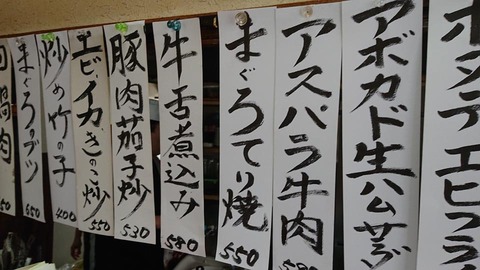 ホタテエビフラ
アボカド生ハムサラダ
アスパラ牛肉
まぐろてり焼
550
牛舌煮込み
580
豚肉茄子炒
530
エビイカきのこ炒
550
炒め竹の子
400
まぐろのブツ
650
回鍋肉